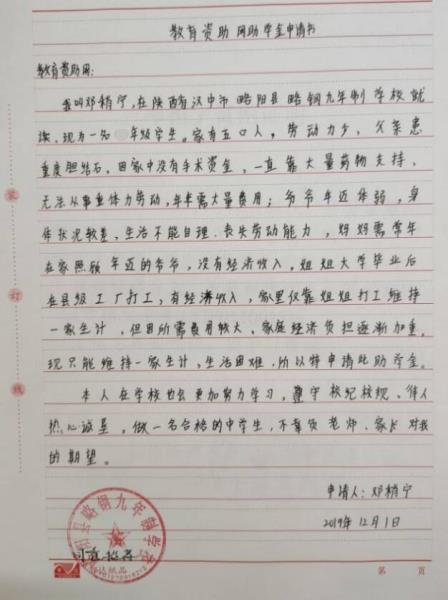 教育资助网助学金申请书
教育资助网:
我叫邓稍宁,在陕西省汉中市略阳县略钢九年制学校就
读,现为一名 年级学生。家有五口人,劳动力少,父亲患
重度胆结石,因家中没有手术资金,一直靠大量药物支持,
无法从事重体力劳动,年年需大量费用;爷爷年迈体弱,身
体状况较差,生活不能自理,丧失劳动能力,妈妈需常年
在家照顾年迈的爷爷,没有经济收入。姐姐大学毕业后
在县级工厂打工,有经济收入,家里仅靠姐姐打工维持
一家生计,但因所需费用较大,家庭经济负担逐渐加重,
现只能维持一家生计,生活困难,所以特申请此助学金。
本人在学校也会更加努力学习,遵守校纪校规、待人
热心诚恳,做一名合格的中学生,不辜负老师、家长对我
的期望。
申请人:邓稍宁
2019年12月1日
县略钢九年制学校
装
订
线
第 页